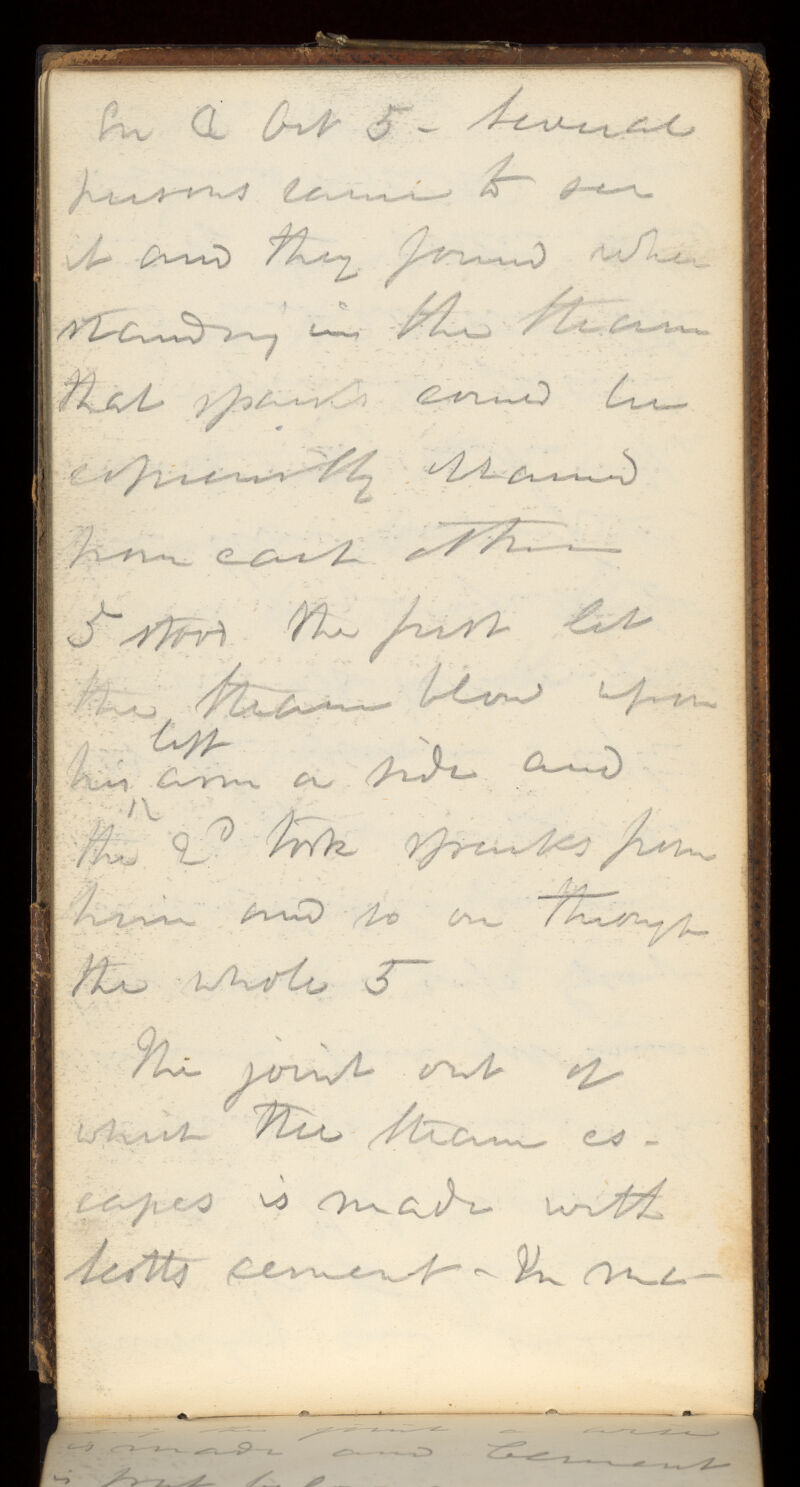 On @ Oct 5 - Several
persons came to see
it and they found when
standing in the steam
that sparks could be
coprously obtained
from each other
5 stood the first let
the steam blow upon
his left arm a side and
the 2D took sparks from
him and so on through
the whole 5
The joint out of
which the steam es-
capes is made with
Scotts cement - In ma-
the joint a
is made and Cement
is put